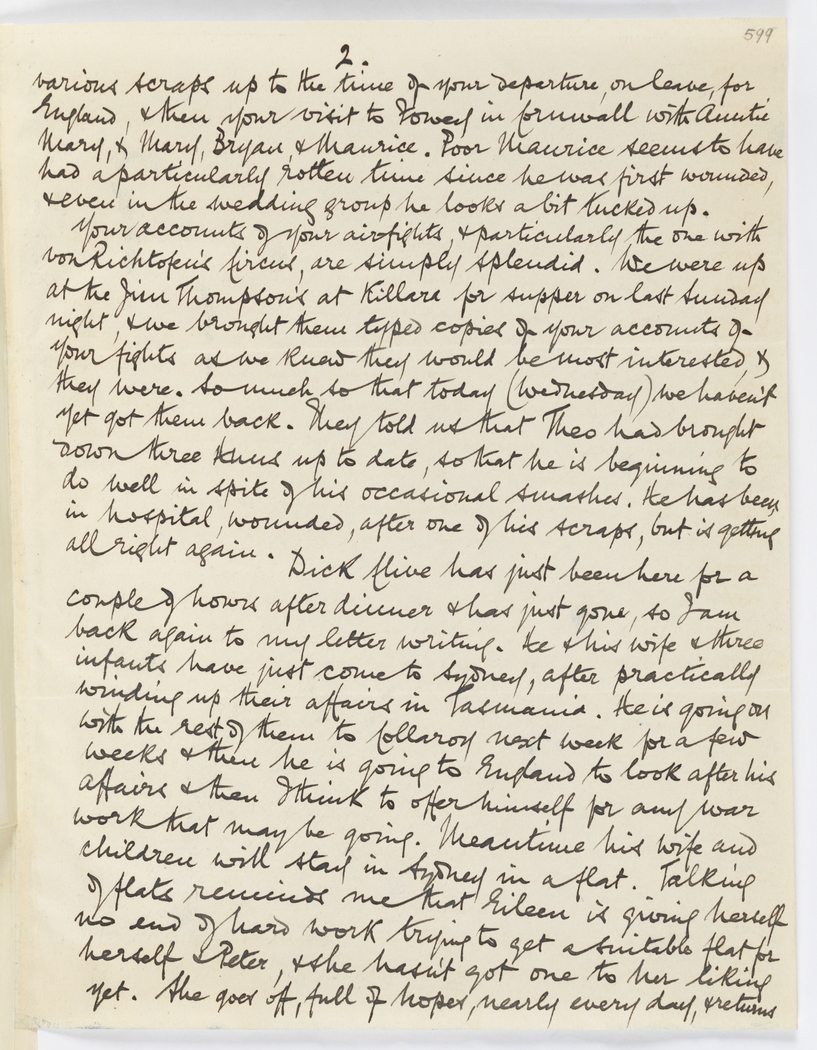 599
2.
various scraps up to the time of your departure, on leave, for
England, & then your visit to Fowey in Cornwall with Auntie
Mary, & Mary, Bryan, & Maurice. Poor Maurice seems to have
had a particularly rotten time since he was first wounded,
& even in the wedding group he looks a bit tucked up.
Your accounts of your airfights, & particularly the one with
von Richtofen's Circus, are simply splendid. We were up
at the Jim Thompson's at Killara for supper on last Sunday
night, & we brought them typed copies of your accounts of
your fights as we knew they would be most interested, &
they were. So much so that today (Wednesday) we haven't
yet got them back. They told us that Theo had brought
down three Huns up to date, so that he is beginning to
do well in spite of his occasional smashes. He has been
in hospital, wounded, after one of his scraps, but is getting
all right again. Dick Clive has just been here for a
couple of hours after dinner & has just gone, so I am
back again to my letter writing. He & his wife & three
infants have just come to Sydney, after practically
winding up their affairs in Tasmania. He is going on
with the rest of them to Collaroy next week for a few
weeks & then he is going to England to look after his
affairs & then I think to offer himself for any war
work that may be going. Meantime his wife and
children will stay in Sydney in a flat. Talking
of flats reminds me that Eileen is giving herself
no end of hard work trying to get a suitable flat for
herself & Peter, & she hasn't got one to her liking
yet. She goes off, full of hopes, nearly every day, & returns